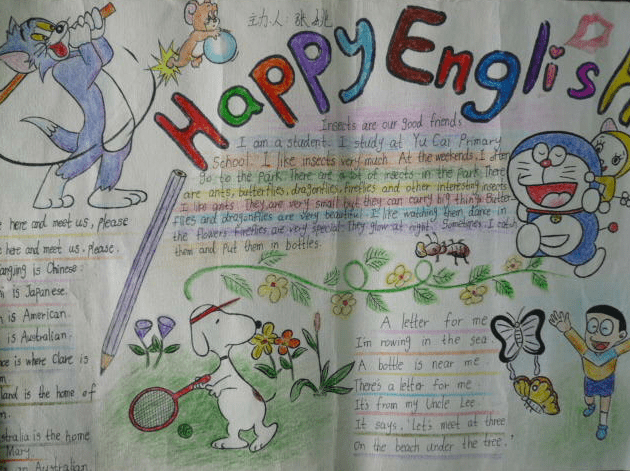 主办人:张姚
Happy English
Insects are our good friends
I am a student. I study at Yu Cai Primary
School. I like insects very much. At the weekends, I often
Go to the park. There are a lot of insects in the park. There
are ants, butterflies, dragonflies, fireflies and other interesting insects
I like ants. They are very small but they can carry big things. Butter-
flies and dragonflies are very beautiful. I like watching them dance in
the flowers. fireflies are very special. They glow at night. Sometimes I catch
them and put them in bottles.
e here and meet us, please
e here and meet us, please.
angjing is Chinese.
i is Japanese.
is American.
is Australian.
ce is where Clare is
m
land is the home of
n.
stralia is the home
Mary.
an Australian.
A letter for me
I'm rowing in the sea.
A bottle is near me
There's a letter for me.
It's from my Uncle Lee.
It says, Let's meet at three
On the beach under the tree.'